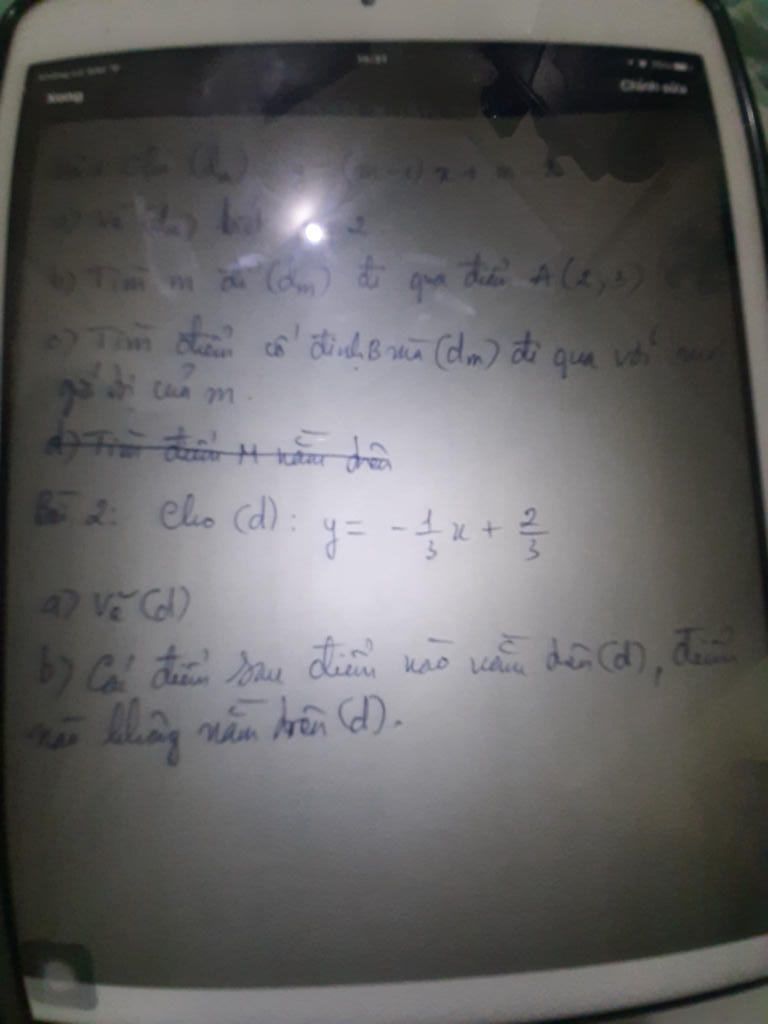 Xong
Chỉnh sửa
(dₘ) (m-1)x + m
a) Vẽ (dₘ) 2
b) Tìm m để (dₘ) đi qua điểm A(2,3)
c) Tìm điểm cố định B mà (dₘ) đi qua với
giá trị của m.
d) Tìm điểm M nằm trên
Bài 2: Cho (d): y = -1/3 x + 2/3
a) Vẽ (d)
b) Các điểm sau điểm nào nằm trên (d), điểm
nào không nằm trên (d).